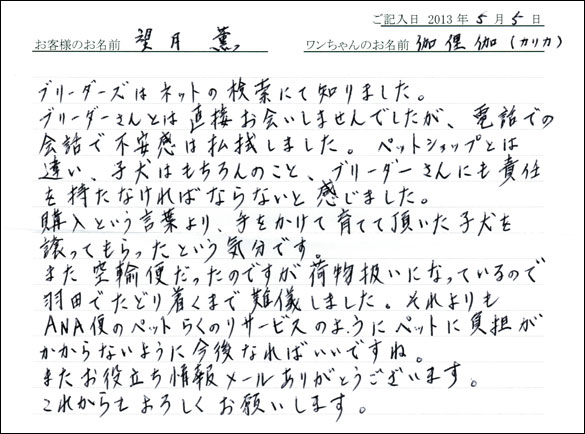 ご記入日 2013年 5月 5日
お客様のお名前 望月 薫 ワンちゃんのお名前 伽俚伽(カリカ)
ブリーダーズはネットの検索にて知りました。
ブリーダーさんとは直接お会いしませんでしたが、電話での
会話で不安感は払拭しました。ペットショップとは
違い、子犬はもちろんのこと、ブリーダーさんにも責任
を持たなければならないと感じました。
購入という言葉より、手をかけて育てて頂いた子犬を
譲ってもらったという気分です。
また空輸便だったのですが荷物扱いになっているので
羽田でたどり着くまで難儀しました。それよりも
ANA便のペットらくのりサービスのようにペットに負担が
かからないように今後なればいいですね。
またお役立ち情報メールありがとうございます。
これからもよろしくお願いします。